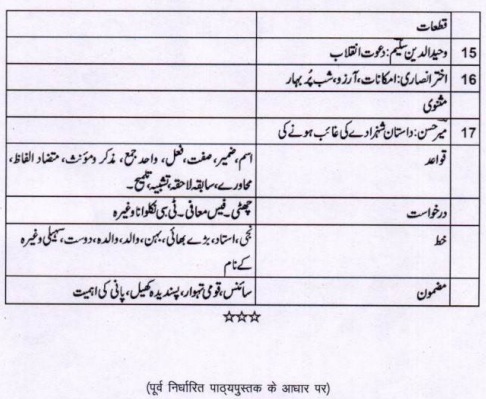 قطعات
15 وحیدالدین سلیم: دعوت انقلاب
16 اختر انصاری: امکانات، آرزو، شب پُر بہار
مثنوی
17 میر حسن: داستان شہزادے کی غائب ہونے کی
قواعد اسم، ضمیر، صفت، فعل، واحد جمع، مذکر و مؤنث، متضاد الفاظ،
محاورے، سابقہ لاحقہ، تشبیہ، تلمیح۔
درخواست چھٹی۔ فیس معافی۔ ٹی سی نکلوانا وغیرہ
خط نجی، استاد، بڑے بھائی، بہن، والد، والدہ، دوست، سہیلی وغیرہ
کے نام
مضمون سائنس، قومی تہوار، پسندیدہ کھیل، پانی کی اہمیت
☆☆☆
(पूर्व निर्धारित पाठ्यपुस्तक के आधार पर)